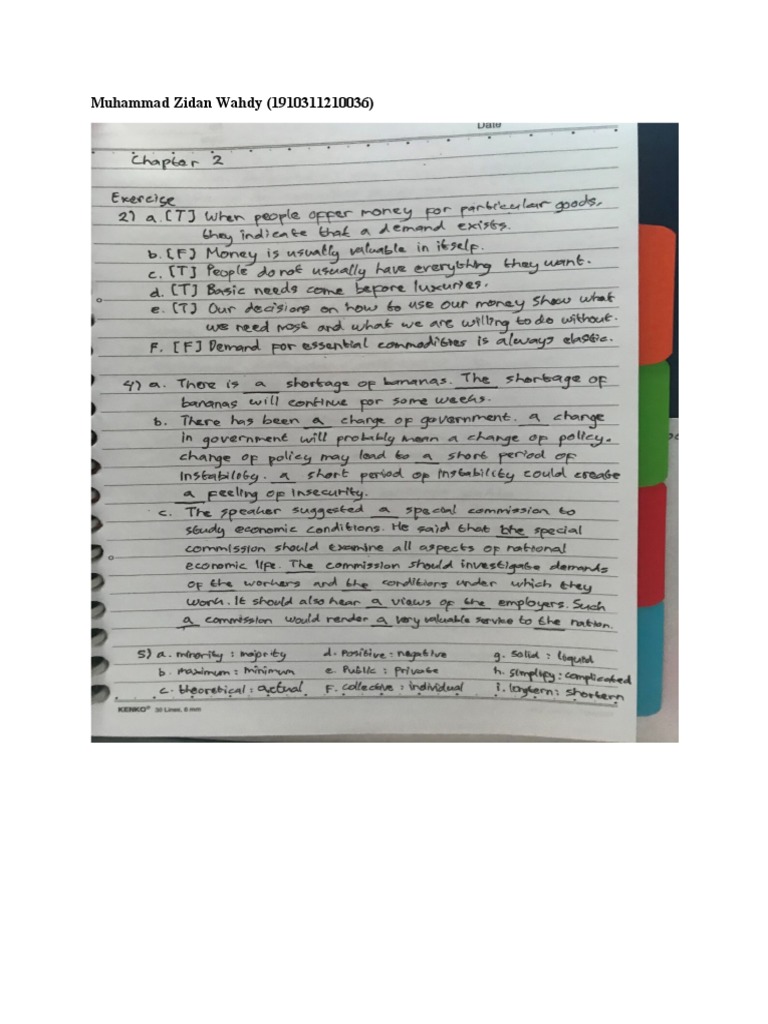 Muhammad Zidan Wahdy (1910311210036)
Date
Chapter 2
Exercise
2) a. [T] When people offer money for particular goods,
they indicate that a demand exists.
b. [F] Money is usually valuable in itself.
c. [T] People do not usually have everything they want.
d. [T] Basic needs come before luxuries.
e. [T] Our decisions on how to use our money show what
we need most and what we are willing to do without.
F. [F] Demand for essential commodities is always elastic.
4) a. There is a shortage of bananas. The shortage of
bananas will continue for some weeks.
b. There has been a change of government. a change
in government will probably mean a change of policy.
change of policy may lead to a short period of
instability. a short period of instability could create
a feeling of insecurity.
c. The speaker suggested a special commission to
study economic conditions. He said that the special
commission should examine all aspects of national
economic life. The commission should investigate demands
of the workers and the conditions under which they
work. It should also hear a views of the employers. Such
a commission would render a very valuable service to the nation.
5) a. minority : majority d. Positive : negative g. solid : liquid
b. maximum : minimum e. Public : private h. simplify : complicated
c. theoretical : actual F. collective : individual i. longtern : shortern
KENKO® 30 Lines, 8 mm